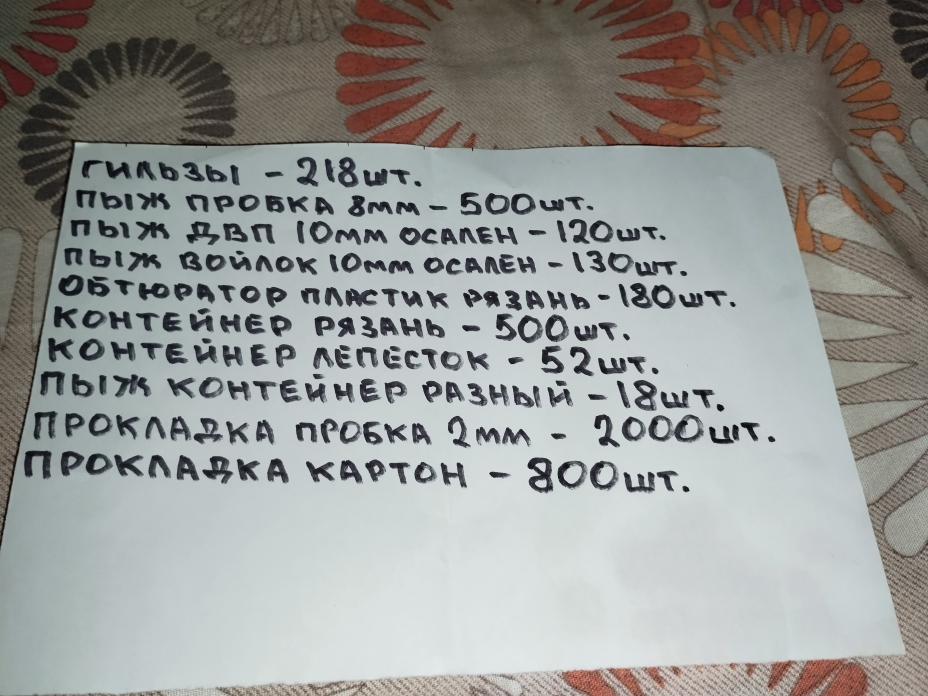 ГИЛЬЗЫ - 218шт.
ПЫЖ ПРОБКА 8мм - 500шт.
ПЫЖ ДВП 10мм ОСАЛЕН - 120шт.
ПЫЖ ВОЙЛОК 10мм ОСАЛЕН - 130шт.
ОБТЮРАТОР ПЛАСТИК РЯЗАНЬ - 180шт.
КОНТЕЙНЕР РЯЗАНЬ - 500шт.
КОНТЕЙНЕР ЛЕПЕСТОК - 52шт.
ПЫЖ КОНТЕЙНЕР РАЗНЫЙ - 18шт.
ПРОКЛАДКА ПРОБКА 2мм - 2000шт.
ПРОКЛАДКА КАРТОН - 800шт.